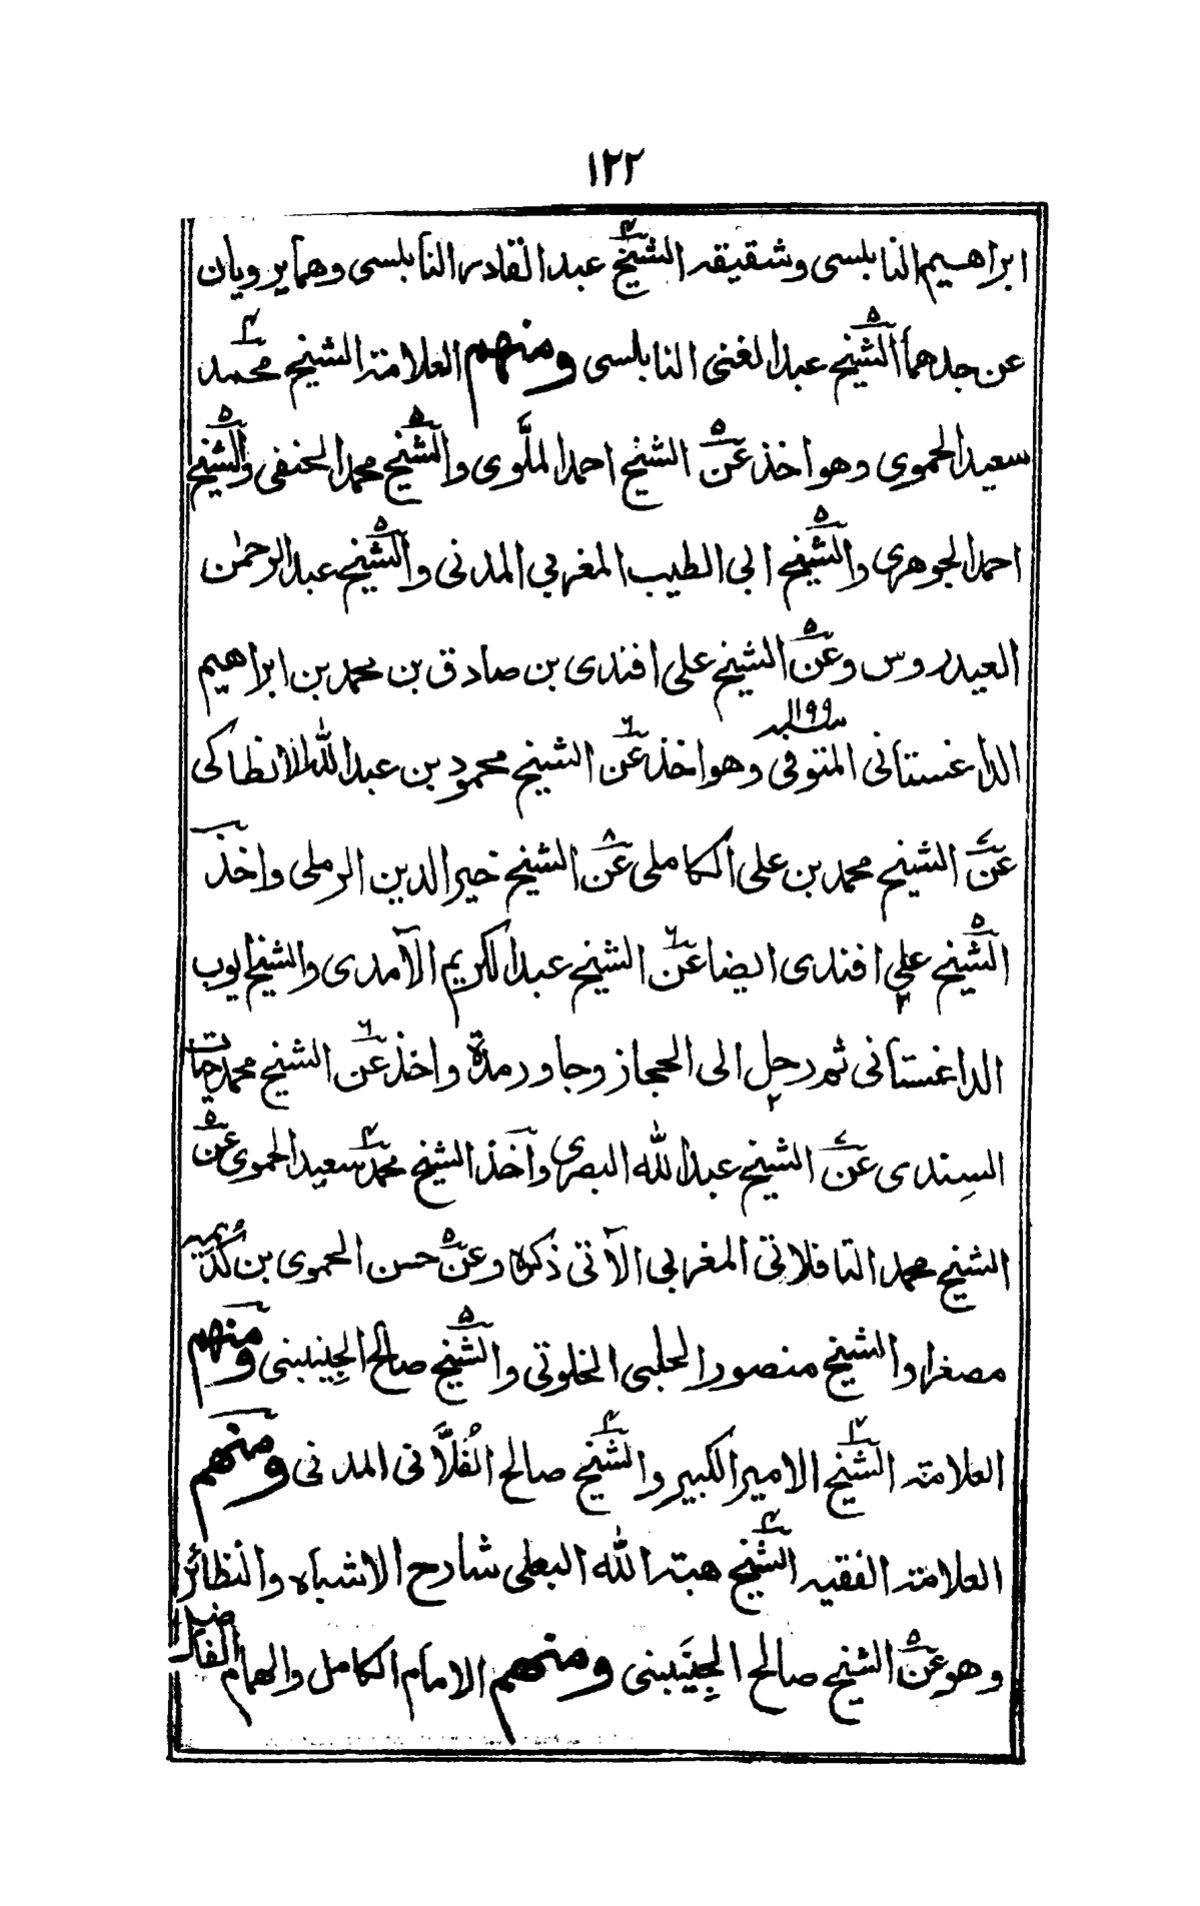 ١٢٢
ابراهيم النابلسى وشقيقه الشيخ عبد القادر النابلسى وهما يرويان
عن جدهما الشيخ عبد الغنى النابلسى ومنهم العلامة الشيخ محمد
سعيد الحموى وهو اخذ عن الشيخ احمد الملَّوى والشيخ محمد الحنفى والشيخ
احمد الجوهرى والشيخ ابى الطيب المغربى المدنى والشيخ عبد الرحمٰن
العيدروس وعن الشيخ على افندى بن صادق بن محمد بن ابراهيم
الداغستانى المتوفى سنة ١١٩٩ وهو اخذ عن الشيخ محمود بن عبد الله الانطاكى
عن الشيخ محمد بن على الكاملى عن الشيخ خير الدين الرملى واخذ
الشيخ على افندى ايضا عن الشيخ عبد الكريم الآمدى والشيخ ايوب
الداغستانى ثم رحل الى الحجاز وجاور مدة واخذ عن الشيخ محمد حيات
السِندى عن الشيخ عبد الله البصرى واخذ الشيخ محمد سعيد الحموى عن
الشيخ محمد التافلاتى المغربى الآتى ذكره وعن حسن الحموى بن كُدَيمير
مصغرا والشيخ منصور الحلبى الخلوتى والشيخ صالح الجِينينى ومنهم
العلامة الشيخ الامير الكبير والشيخ صالح الفُلَّانى المدنى ومنهم
العلامة الفقيه الشيخ هبة الله البعلى شارح الاشباه والنظائر
وهو عن الشيخ صالح الجِينَينى ومنهم الامام الكامل والهمام الفاضل